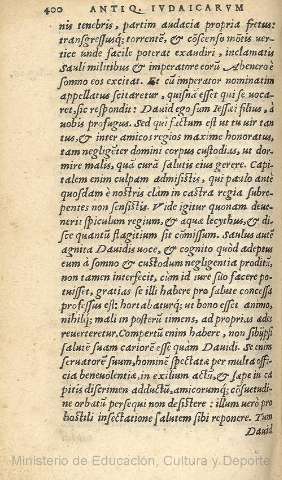 400 ANTIQ. IVDAICARVM
nis tenebris, partim audacia propria fretus:
transgressusq; torrentē, & cōscenso mōtis ver-
tice unde facile poterat exaudiri, inclamatis
Sauli militibus & imperatore eorū Abenero è
somno eos excitat. Et cū imperator nominatim
appellatus scitaretur, quisna esset qui se uoca-
ret, sic respondit: Dauid ego sum Iessæi filius, à
uobis profugus. Sed qui factum est ut tu uir tan
tus, & inter amicos regios maxime honoratus,
tam negligēter domini corpus custodias, ut dor
mire malis, quā curā salutis eius gerere. Capi-
talem enim culpam admisistis, qui paulo ante
quosdam è nostris clam in castra regia subre-
pentes non sensistis. Vide igitur quonam deue-
nerit spiculum regium, & aquæ lecythus, & di-
sce quantū flagitium sit cōmissum. Saulus autē
agnita Dauidis uoce, & cognito quòd adeptus
eum à somno & custodum negligentia proditū,
non tamen interfecit, cùm id iure suo facere po-
tuisset, gratias se illi habere pro salute concessa
professus est: hortabaturq; ut bono esset animo,
nihilq; mali in posterū timens, ad propria ædes
reuerteretur. Compertū enim habere, non sibiipsi
salutē suam cariorē esse quàm Dauidi. Se enim
seruatorē suum, hominē spectatæ per multa offi-
cia beneuolentiæ, in exilium actū, & sæpe in ca
pitis discrimen adductū, amicorumq; cōsuetudi-
ne orbatū persequi non desistere: illum uerò pro
hostili insectatione salutem sibi reponere. Tum
Dauid
Ministerio de Educación, Cultura y Deporte